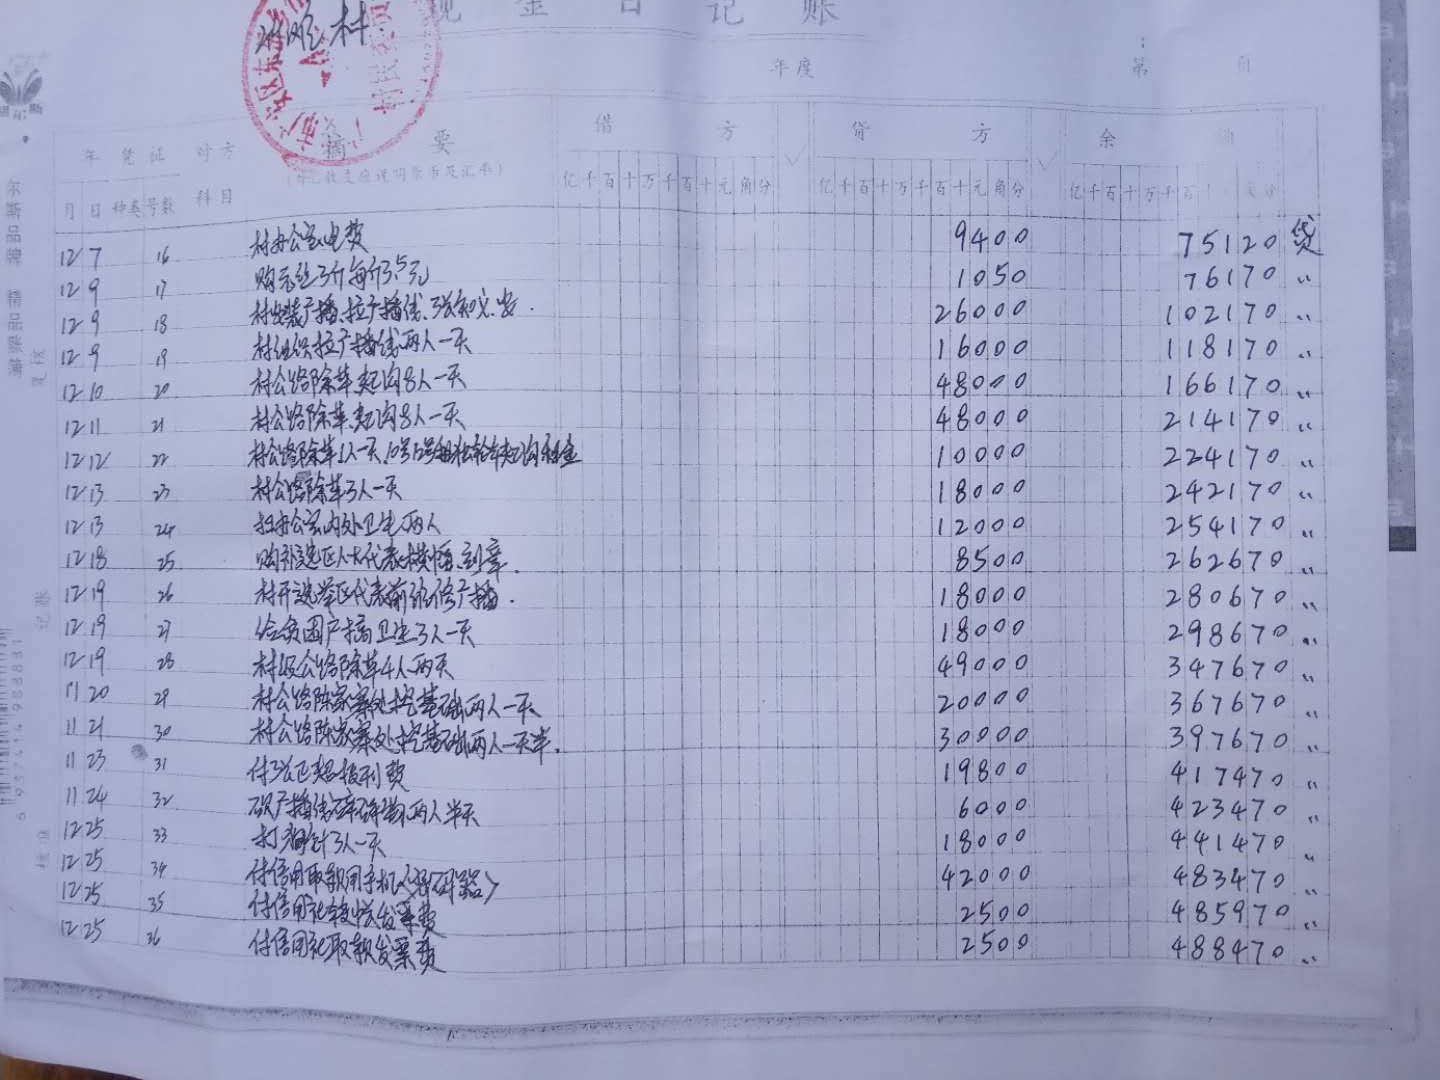 现 金 日 记 账
滩村
年度
第 页
年 凭证 对方 摘 要 借 方 贷 方 余 额
月 日 种类 号数 科目 亿千百十万千百十元角分 亿千百十万千百十元角分 亿千百十万千百
12 7 16 村办公室电费 9400 75120 贷
12 9 17 购元丝3斤每斤3.5元 1050 76170 〃
12 9 18 村安装广播、拉广播线 26000 102170 〃
12 9 19 村组织拉广播线两人一天 16000 118170 〃
12 10 20 村公路除草.起沟8人一天 48000 166170 〃
12 11 21 村公路除草.起沟8人一天 48000 214170 〃
12 12 22 村公路除草1人一天 10000 224170 〃
12 13 23 村公路除草3人一天 18000 242170 〃
12 13 24 扫办公室内外卫生两人 12000 254170 〃
12 18 25 购补选区人大代表横幅、刻章. 8500 262670 〃
12 19 26 村开选举区代表前 修广播. 18000 280670 〃
12 19 27 给贫困户搞卫生3人一天 18000 298670 〃
12 19 28 村级公路除草4人两天 49000 347670 〃
11 20 29 村公路陈家寨处挖基础两人一天 20000 367670 〃
11 21 30 村公路陈家寨处挖基础两人一天半. 30000 397670 〃
11 23 31 付 报刊费 19800 417470 〃
11 24 32 广播线 两人半天 6000 423470 〃
12 25 33 3人一天 18000 441470 〃
12 25 34 付信用取款用手机 42000 483470 〃
12 25 35 付信用社转帐发票费 2500 485970 〃
12 25 36 付信用社取款发票费 2500 488470 〃
尔斯品牌 精品账簿
复核
记账